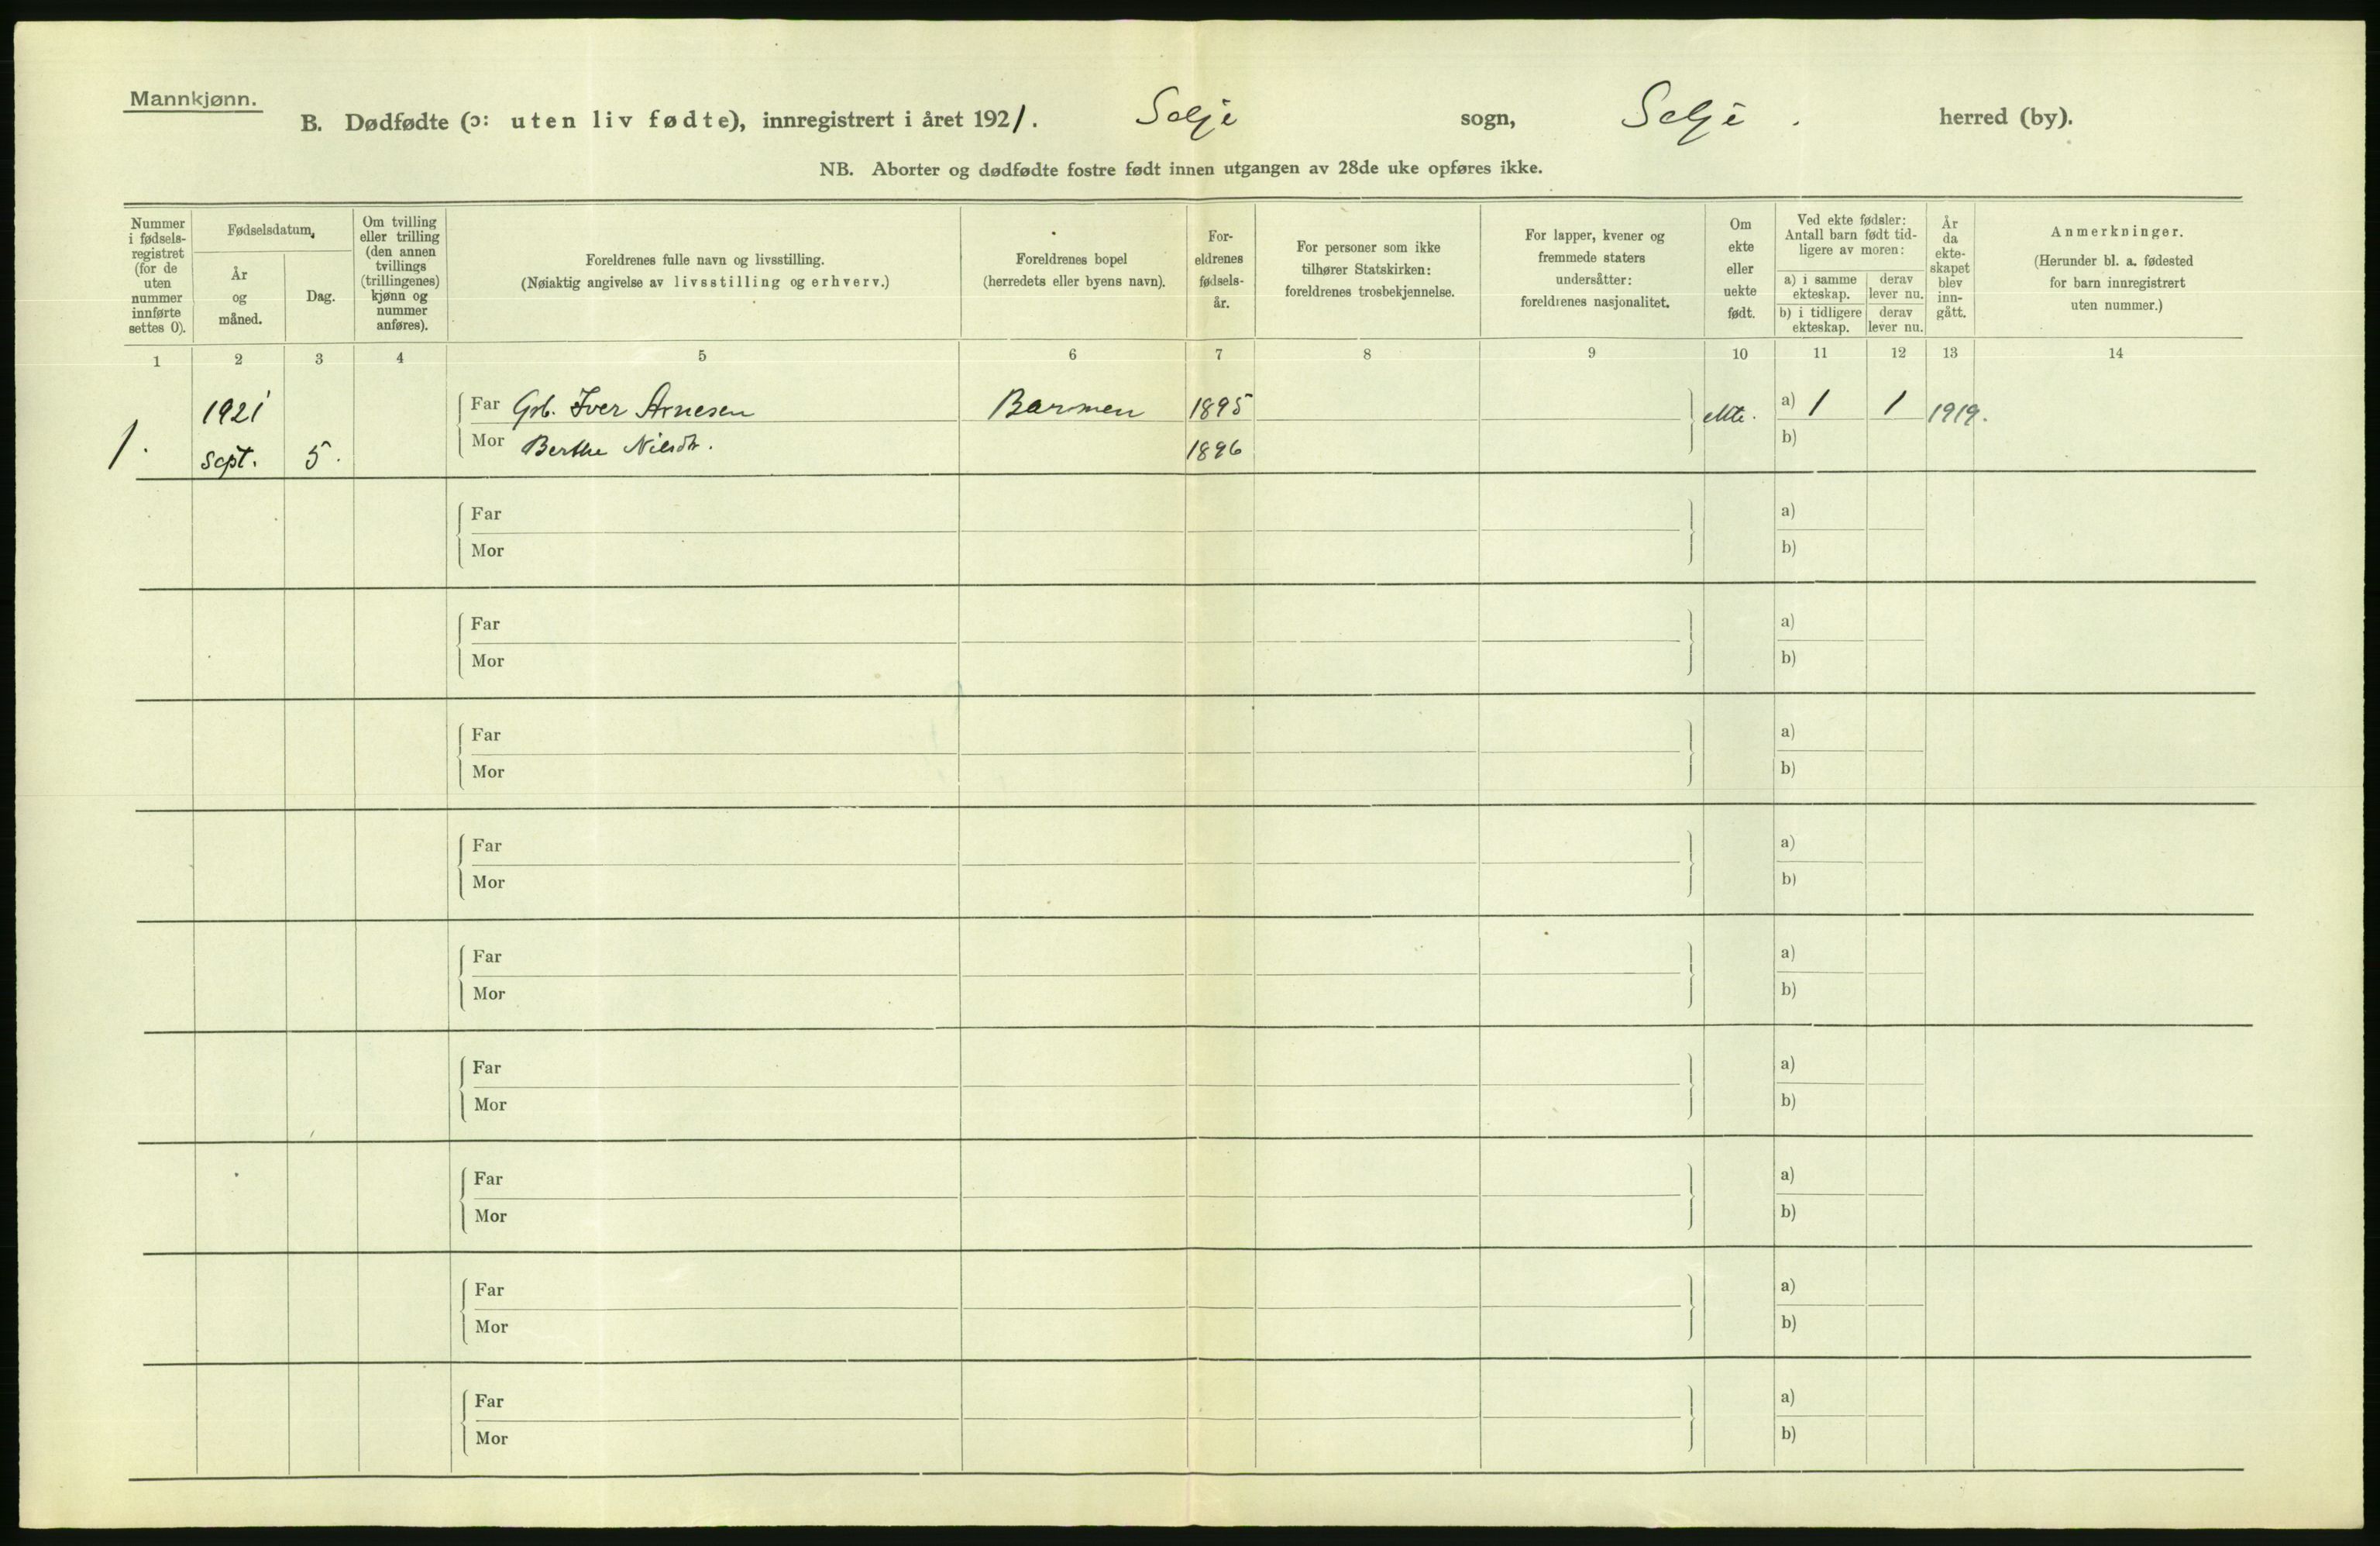 Mannkjønn.
B. Dødfødte (ɔ: uten liv fødte), innregistrert i året 1921. Selje sogn, Selje. herred (by).
NB. Aborter og dødfødte fostre født innen utgangen av 28de uke opføres ikke.
Nummer i fødsels-registret (for de uten nummer innførte settes 0).
Fødselsdatum,
År og måned.
Dag.
Om tvilling eller trilling (den annen tvillings (trillingenes) kjønn og nummer anføres).
Foreldrenes fulle navn og livsstilling.
(Nøiaktig angivelse av livsstilling og erhverv.)
Foreldrenes bopel
(herredets eller byens navn).
For-eldrenes fødsels-år.
For personer som ikke
tilhører Statskirken:
foreldrenes trosbekjennelse.
For lapper, kvener og
fremmede staters
undersåtter:
foreldrenes nasjonalitet.
Om ekte eller uekte født.
Ved ekte fødsler:
Antall barn født tid-
ligere av moren:
a) i samme ekteskap.
derav lever nu.
b) i tidligere ekteskap.
derav lever nu.
År da ekte-skapet blev inn-gått.
Anmerkninger.
(Herunder bl. a. fødested
for barn innregistrert
uten nummer.)
1 2 3 4 5 6 7 8 9 10 11 12 13 14
1. 1921 Sept. 5.
Far Grb. Iver Arnesen Barmen 1895 ekte. a) 1 1 1919.
Mor Berthe Nilsdtr. 1896 b)
Far a)
Mor b)
Far a)
Mor b)
Far a)
Mor b)
Far a)
Mor b)
Far a)
Mor b)
Far a)
Mor b)
Far a)
Mor b)
Far a)
Mor b)
Far a)
Mor b)